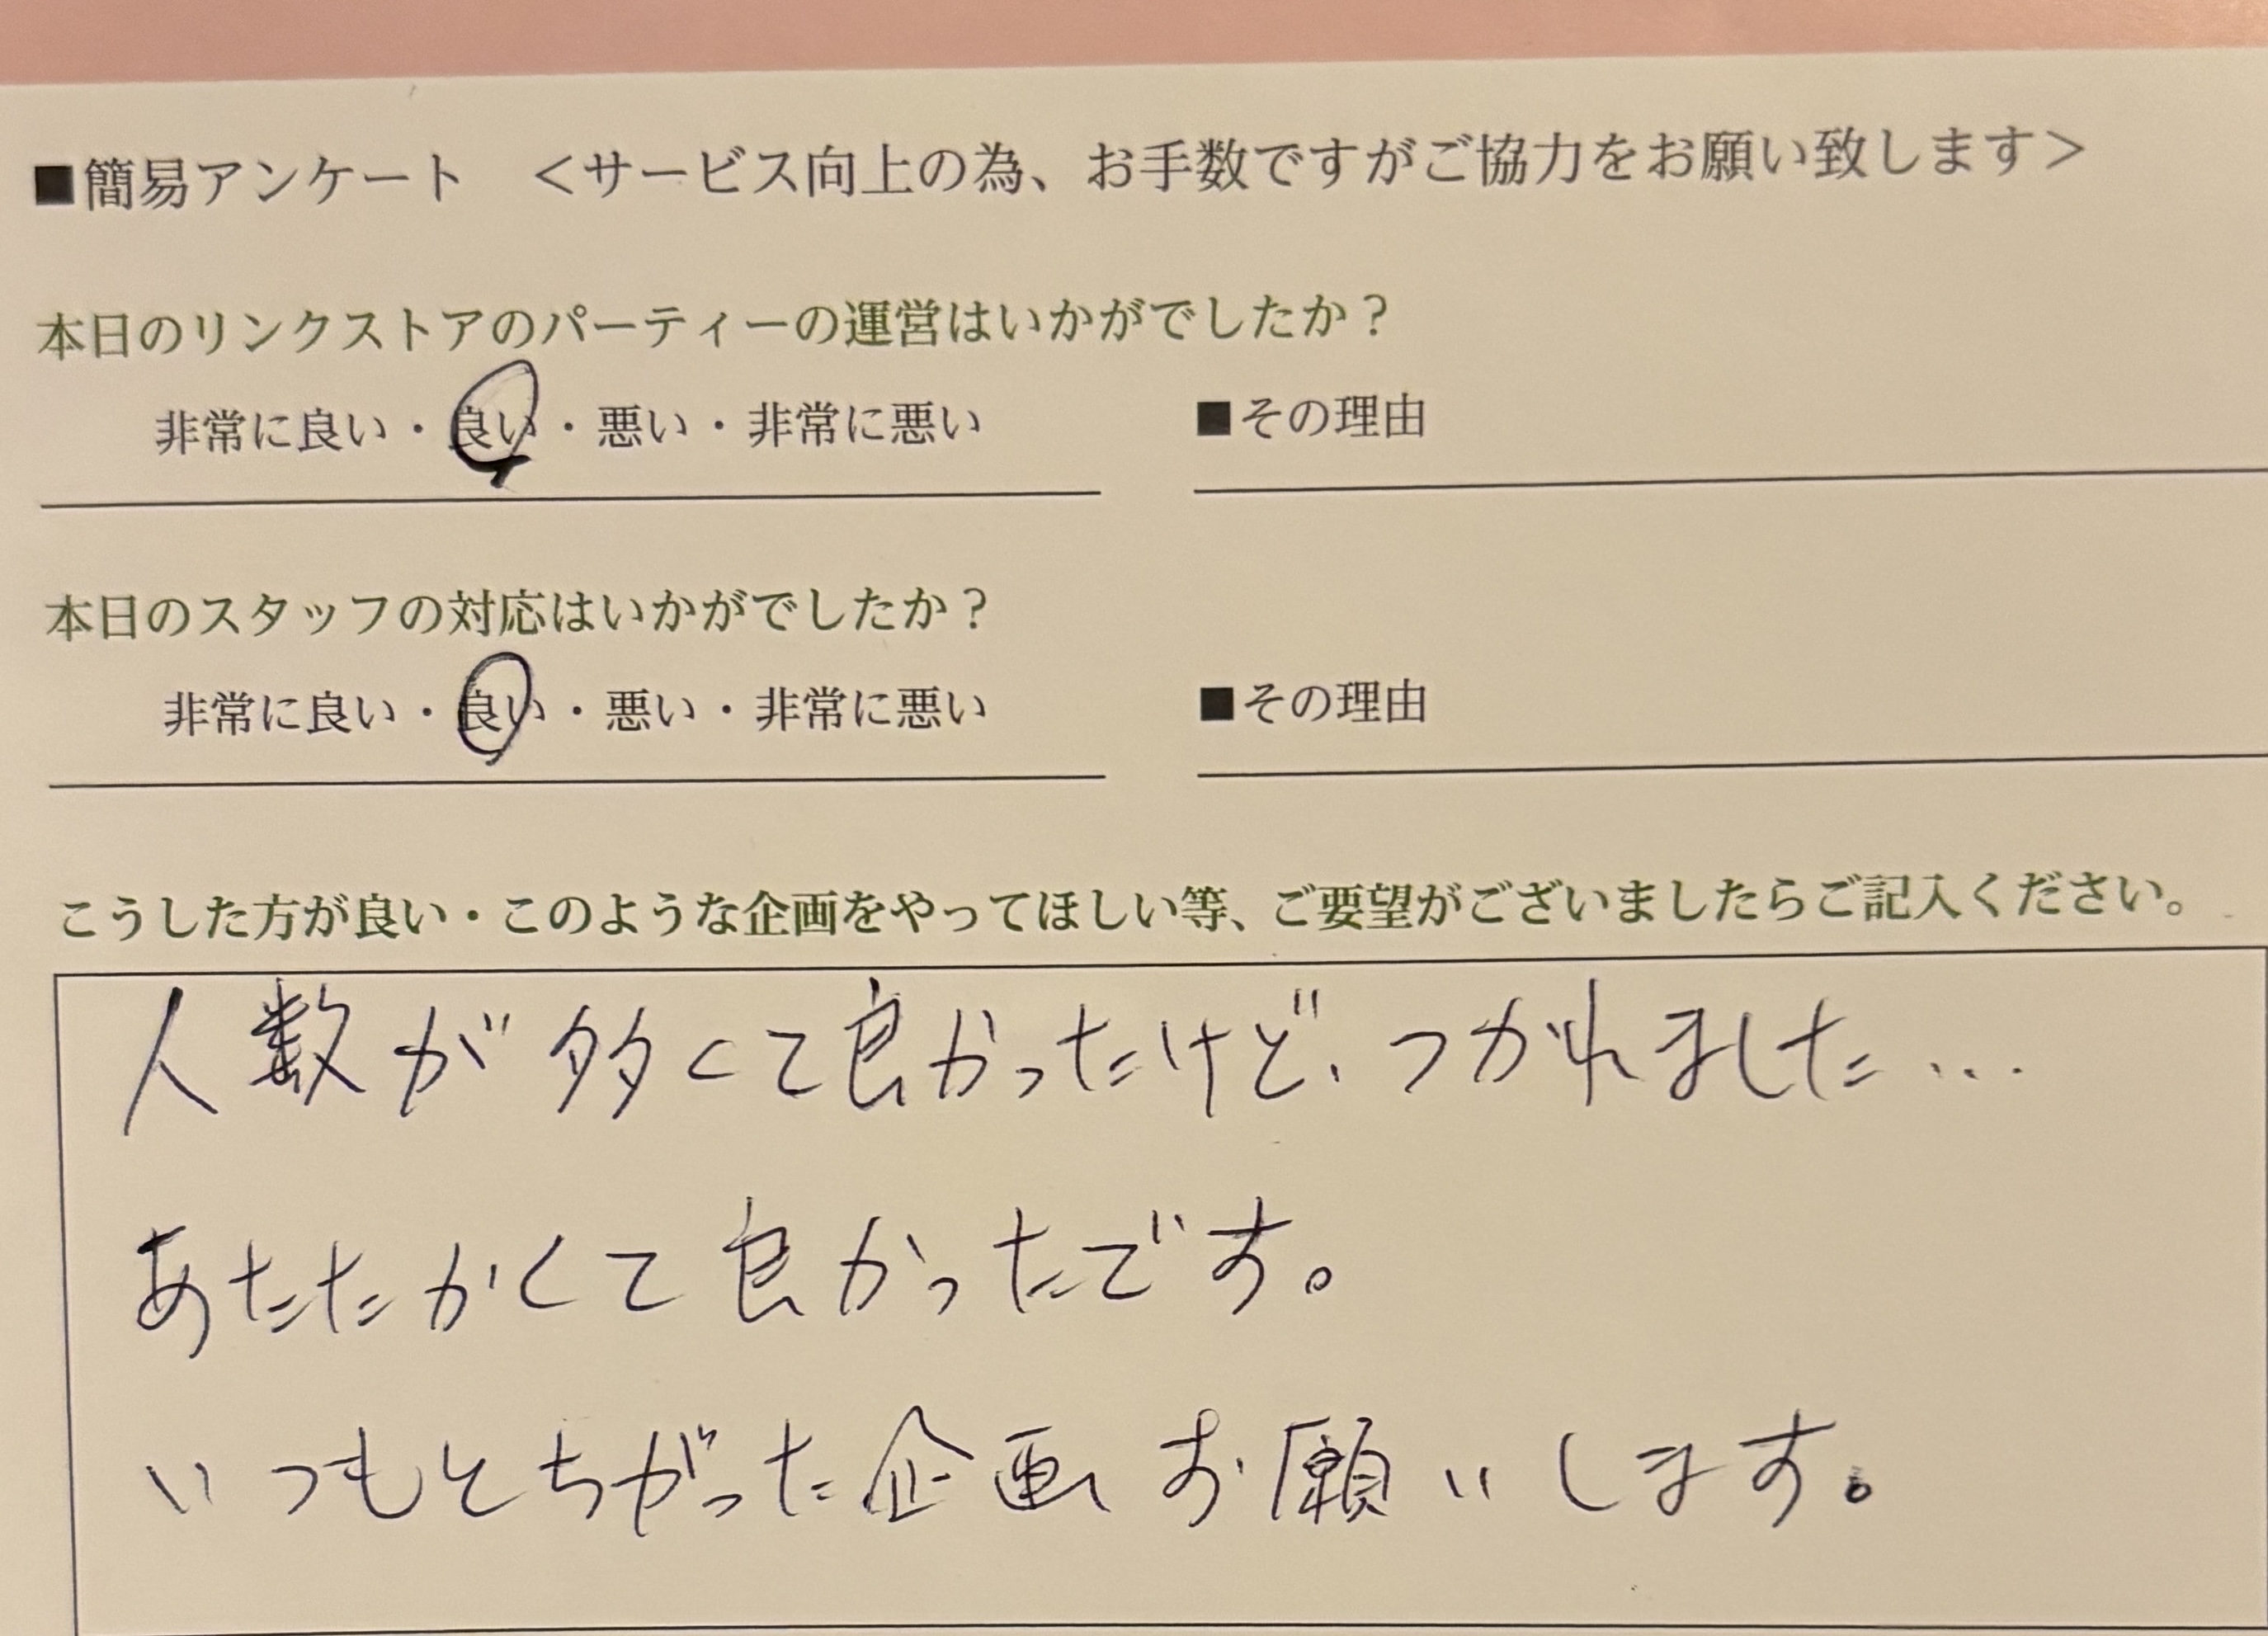 ■簡易アンケート　＜サービス向上の為、お手数ですがご協力をお願い致します＞
本日のリンクストアのパーティーの運営はいかがでしたか？
非常に良い・良い・悪い・非常に悪い　■その理由
本日のスタッフの対応はいかがでしたか？
非常に良い・良い・悪い・非常に悪い　■その理由
こうした方が良い・このような企画をやってほしい等、ご要望がございましたらご記入ください。
人数が多くて良かったけど、つかれました…
あたたかくて良かったです。
いつもとちがった企画お願いします。